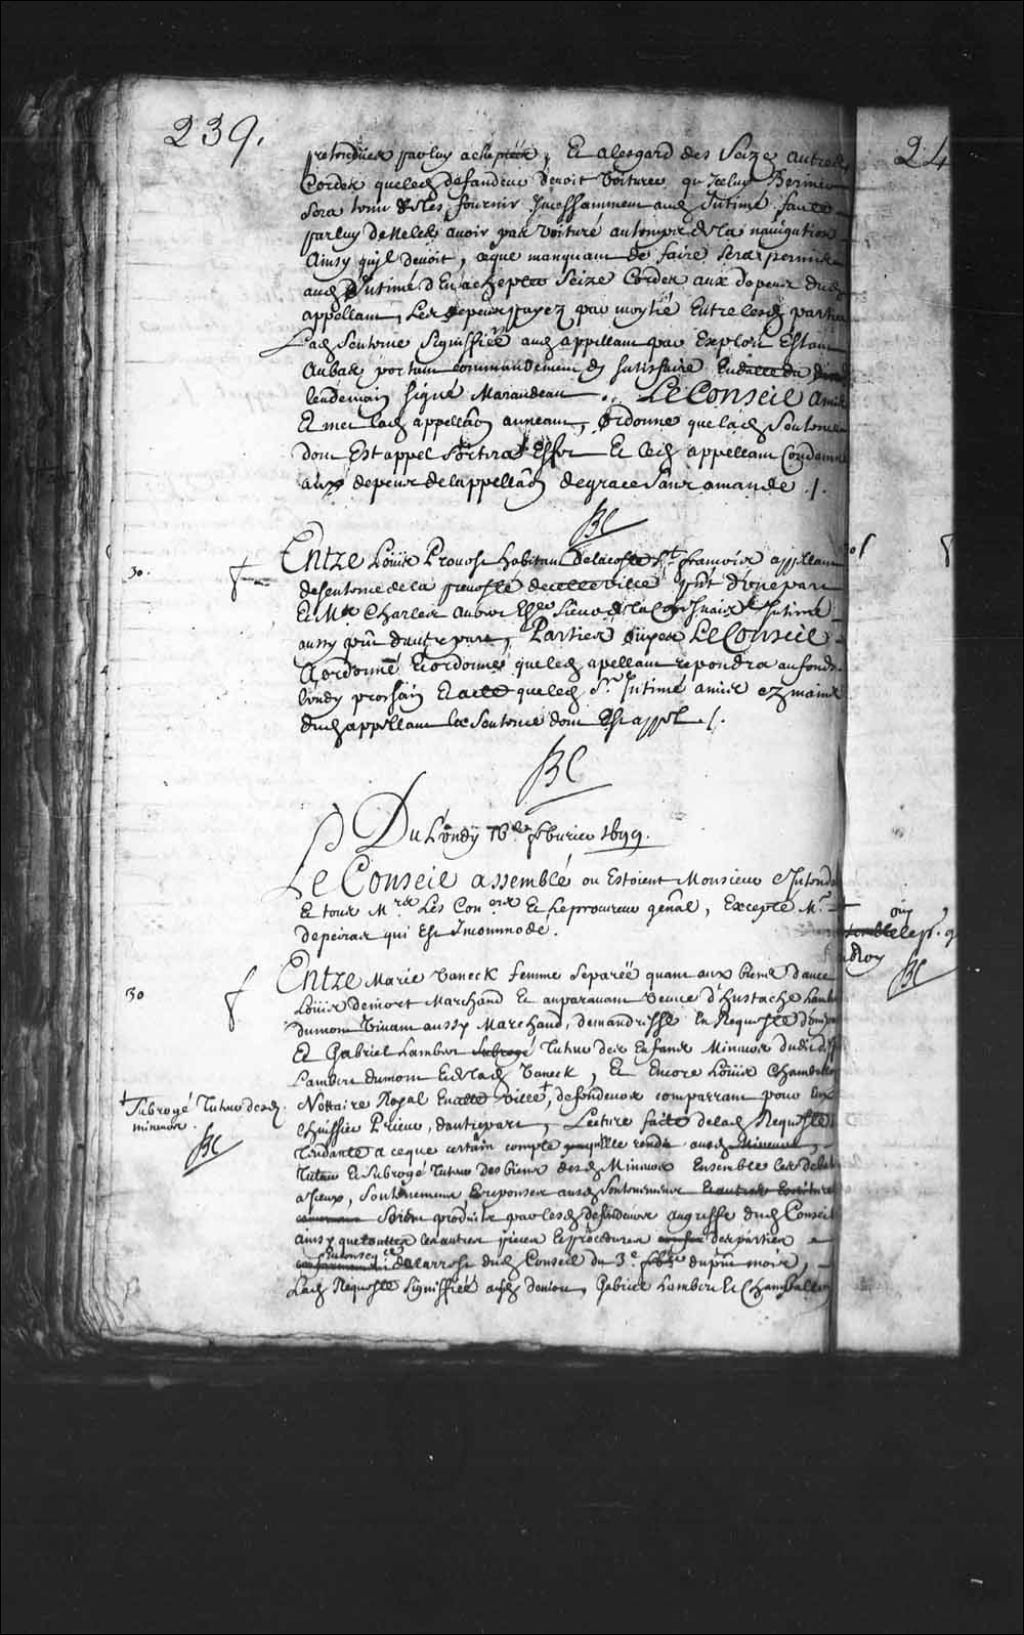 239.
24
pretendües par luy acheptéés, Et alesgard des Seize autres
Cordes queled defandeur devoit voiturer qu'Iceluy Bernier
Sera tenu de les fournir Incessamment aud Intimé faute
par luy de les avoir voituré au temps de la navigation
Ainsy qu'Il devoit, a que manquant de faire sera permis
aud Intimé d'En achepter Seize Cordes aux depens dud
appellant, Les depens payez par moytié Entre lesd parties
Lad Sentence Signiffiée aud appellant par Exploit Estant
Aubas portant commandement dy satisfaire du
lendemain signé Marandeau .. Le Conseil a mis
Et met lad appellaõn auneant, Ordonne que lad Sentence
dont Est appel Sortira Effet Et led appellant Condamné
aux depens de lappellaõn de grace sans amande ./.
BC
30.
Entre Loüis Prouost habitant delacoste St. françois appellant
de sentence de la preuosté de cette ville pnt d'une part
Et Me Charles Aubert Esc Sieur de la Chesnaie Intimé
aussy pnt d'autre part, Parties oüyes Le Conseil
A ordonné Et ordonne queled apellant repondra au fonds
lundy prochain Et acte queled Sr. Intimé a mis ez mains
dud appellant la Sentence dont Est appel ./.
BC
Du Lundy 16e. feburier 1699.
Le Conseil assemblé ou Estoient Monsieur L'Intendant
Et tous Mrs Les Coners Et Le procureur genãl, Excepté Mr.
depeiras qui Est Incommodé.
ouy
le pr. g
du Roy
BC
30
Entre Marie Vaneck femme Separéé quant aux biens d'avec
Loüis deniort Marchand Et auparavant veuve d'Eustache Lambert
dumont vivant aussy Marchand, demandresse En Requeste d'une part
Et Gabriel Lambert Subrogé Tuteur des Enfans Mineurs dudit deffunt
Lambert dumont Et de lad Vaneck, Et Encore Loüis Chambalon
Nottaire Royal En cette ville †, defendeurs comparant pour Eux
† Subrogé Tuteur desd
mineurs.
BC
L'huissier Prieur, d'autrepart, Lecture faite de lad Requeste
Tendante a ceque certain compte quelle rendu ausd Mineurs
Tuteur Et Subrogé Tuteur des biens desd Mineurs Ensemble les debats
a Iceux, Soutenemens, Et reponses ausd Soutenemens Et autres Escritures
Soient produits par lesd defendeurs au greffe dud Conseil
ainsy que toutes les autres pieces Et procedures des parties
En consequence de l'arrest dud Conseil du 3e. febr du pnt mois,
Lad Requeste Signiffiéé ausd deniort, Gabriel Lambert Et Chamballon